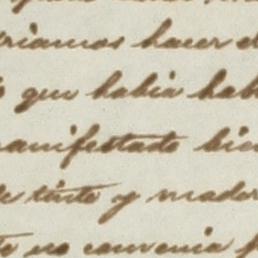 riamos hacer el
que habia hab
manifestado bien
de tinte y mader
no convenia